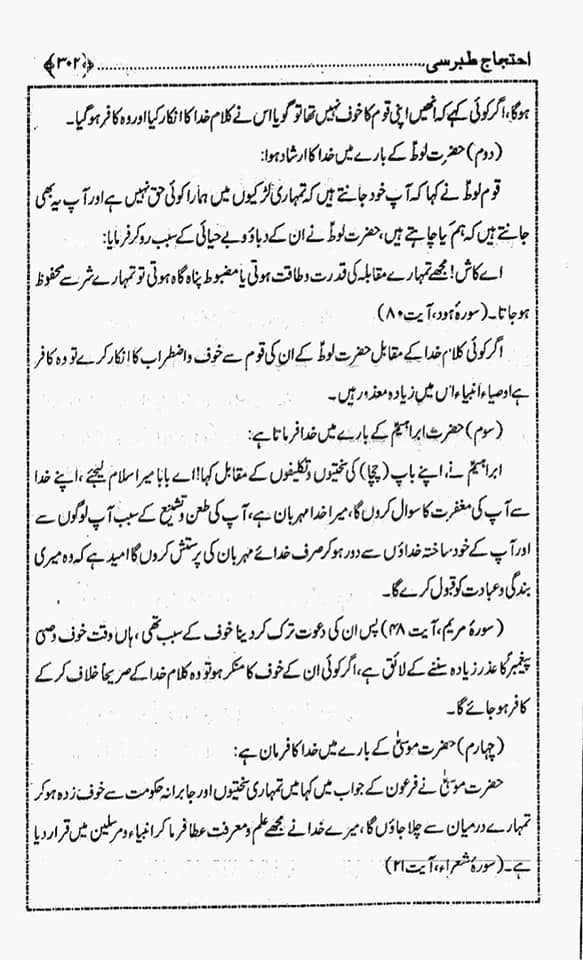 احتجاج طبرسی ........................................ ﴿۳۰۲﴾
ہوگا، اگر کوئی کہے کہ انھیں اپنی قوم کا خوف نہیں تھا تو گویا اس نے کلام خدا کا انکار کیا اور وہ کافر ہو گیا۔
(دوم) حضرت لوطؑ کے بارے میں خدا کا ارشاد ہوا:
قوم لوطؑ نے کہا کہ آپ خود جانتے ہیں کہ تمہاری لڑکیوں میں ہمارا کوئی حق نہیں ہے اور آپ یہ بھی
جانتے ہیں کہ ہم کیا چاہتے ہیں، حضرت لوطؑ نے ان کے دباؤ و بے حیائی کے سبب رو کر فرمایا:
اے کاش! مجھے تمہارے مقابلہ کی قدرت و طاقت ہوتی یا مضبوط پناہ گاہ ہوتی تو تمہارے شر سے محفوظ
ہو جاتا۔ (سورۂ ہود، آیت ۸۰)
اگر کوئی کلام خدا کے مقابل حضرت لوطؑ کے ان کی قوم سے خوف و اضطراب کا انکار کرے تو وہ کافر
ہے اوصیاء انبیاء اس میں زیادہ معذور ہیں۔
(سوم) حضرت ابراہیمؑ کے بارے میں خدا فرماتا ہے:
ابراہیمؑ نے، اپنے باپ (چچا) کی سختیوں و تکلیفوں کے مقابل کہا! اے بابا میرا سلام لیجئے، اپنے خدا
سے آپ کی مغفرت کا سوال کروں گا، میرا خدا مہربان ہے، آپ کی طعن و تشنیع کے سبب آپ لوگوں سے
اور آپ کے خود ساختہ خداؤں سے دور ہو کر صرف خدائے مہربان کی پرستش کروں گا امید ہے کہ وہ میری
بندگی و عبادت کو قبول کرے گا۔
(سورۂ مریم، آیت ۴۸) پس ان کی دعوت ترک کر دینا خوف کے سبب تھی، ہاں وقت خوف وصی
پیغمبرؐ کا عذر زیادہ سننے کے لائق ہے، اگر کوئی ان کے خوف کا منکر ہو تو وہ کلام خدا کے صریحاً خلاف کر کے
کافر ہو جائے گا۔
(چہارم) حضرت موسیٰؑ کے بارے میں خدا کا فرمان ہے:
حضرت موسیٰؑ نے فرعون کے جواب میں کہا میں تمہاری سختیوں اور جابرانہ حکومت سے خوف زدہ ہو کر
تمہارے درمیان سے چلا جاؤں گا، میرے خدا نے مجھے علم و معرفت عطا فرما کر انبیاء و مرسلین میں قرار دیا
ہے۔ (سورۂ شعراء، آیت ۲۱)